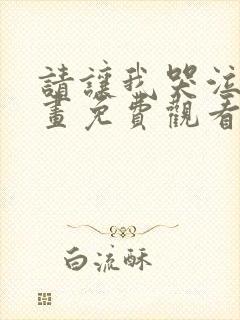 請讓我哭泣
畫免費觀看
白流酥